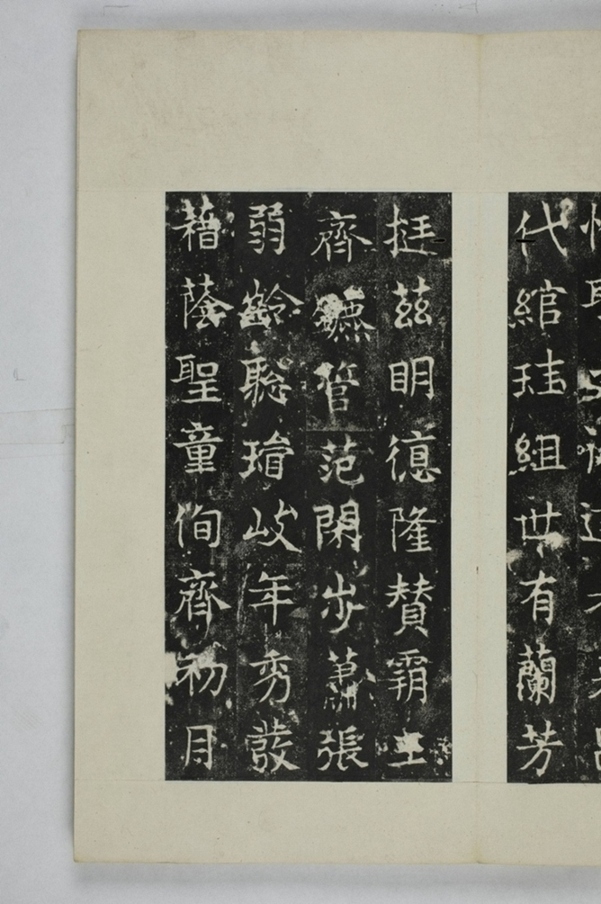 代綰珪組世有蘭芳
挺茲明徳隆賛霸王
齊鑣管范閑步蕭張
弱齡聡岐年秀發
藉蔭聖童侚齊初月